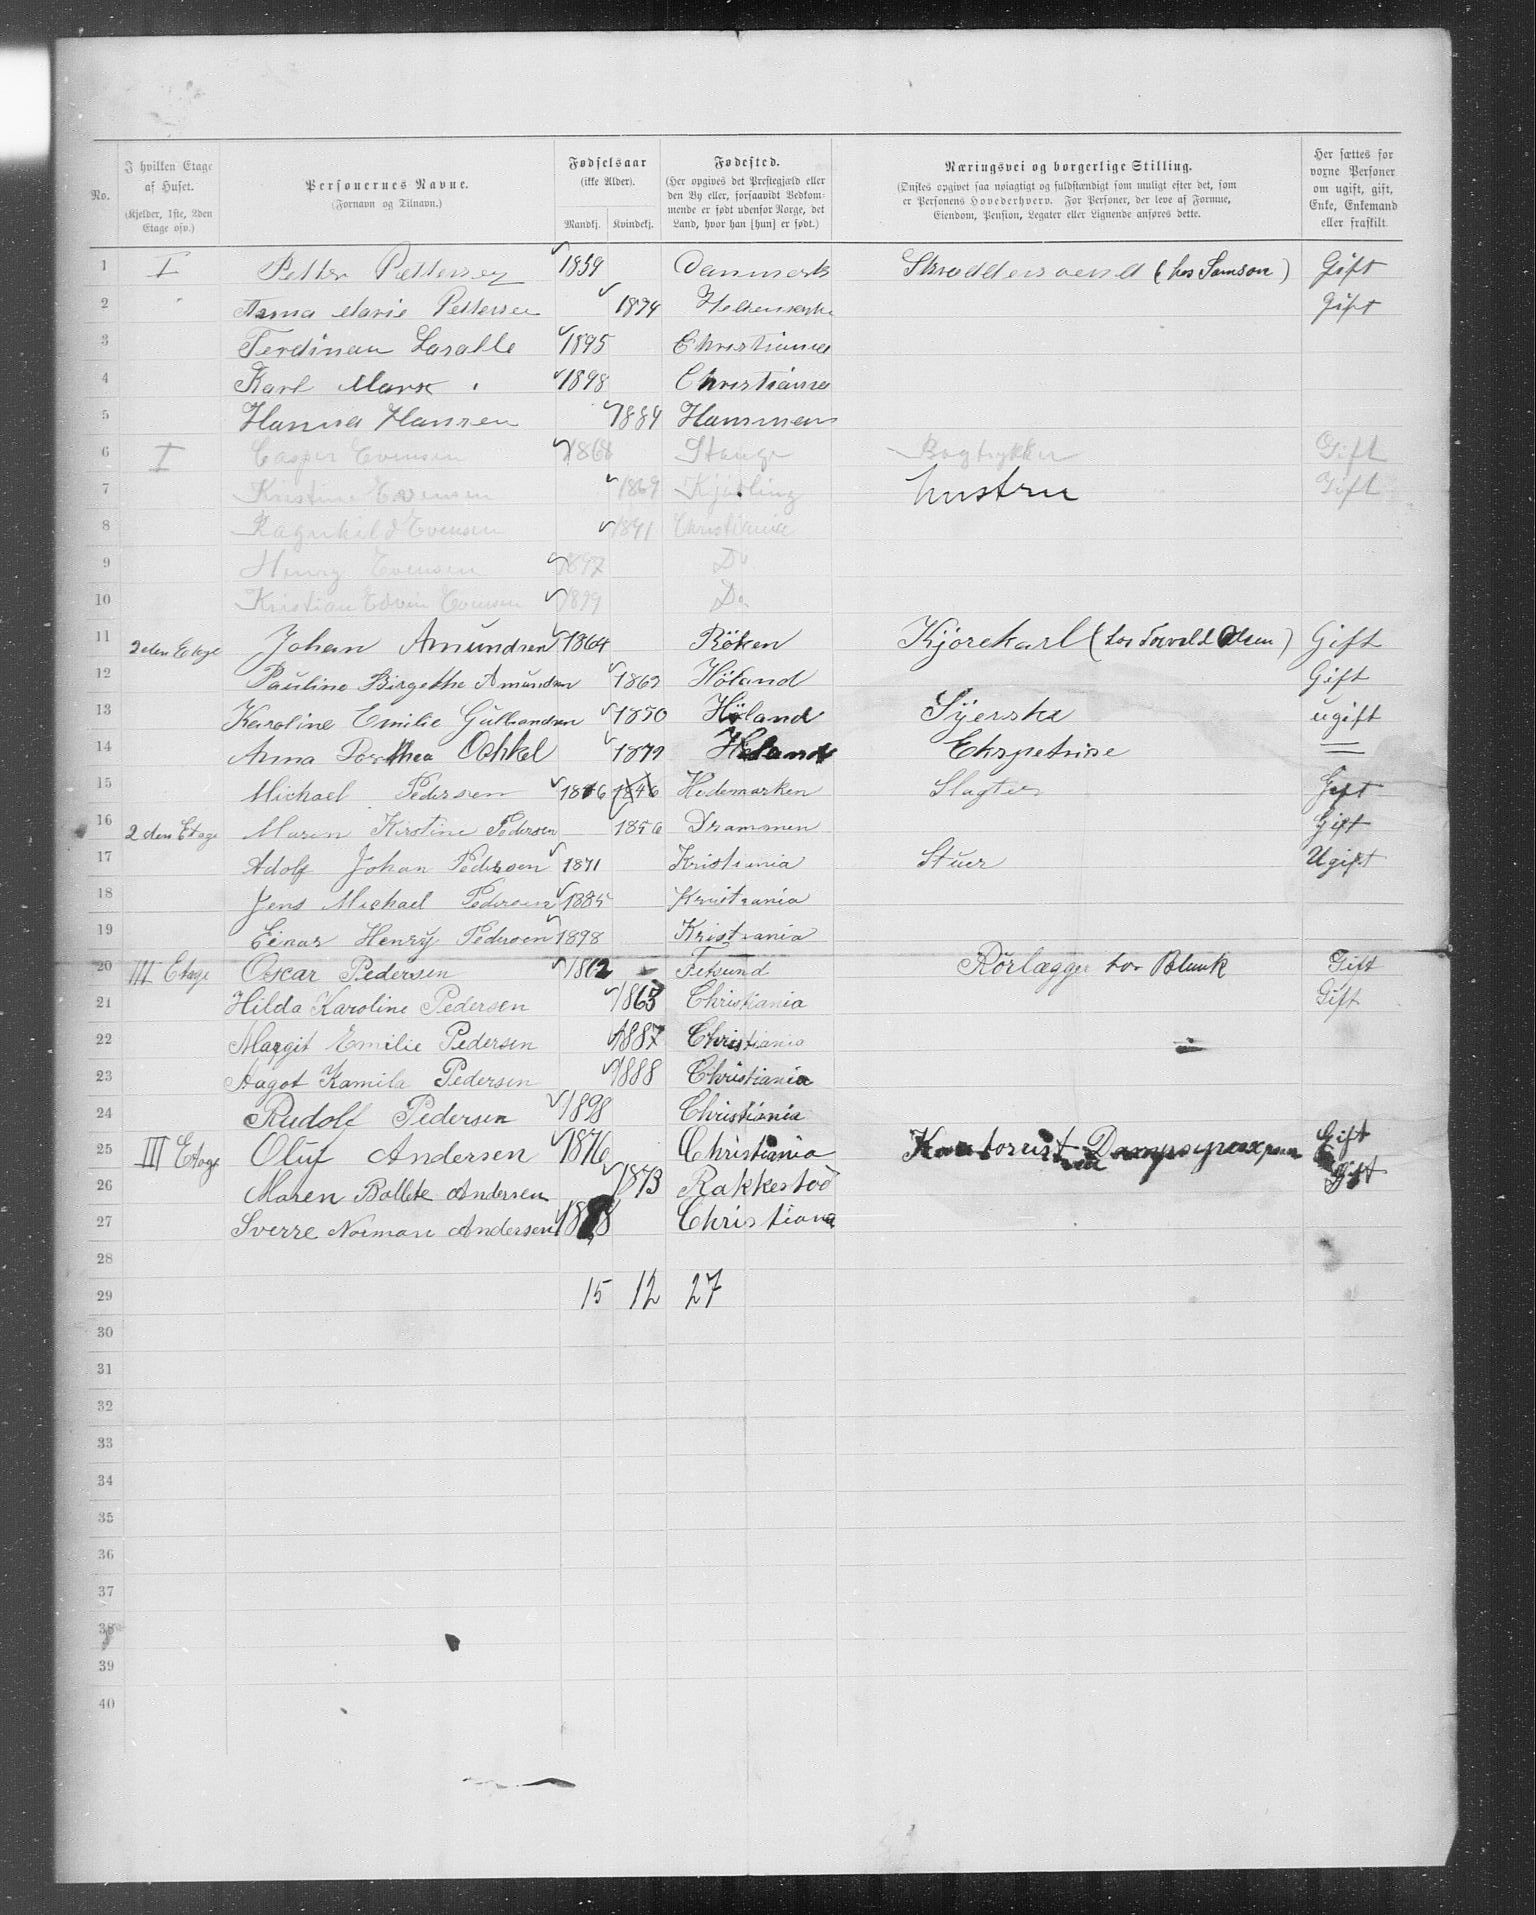 No.
I hvilken Etage af Huset. (Kjelder, 1ste, 2den Etage osv.)
Personernes Navne. (Fornavn og Tilnavn.)
Fødselsaar (ikke Alder). Mandkj. Kvindekj.
Fødested. (Her opgives det Prestegjæld eller den By eller, forsaavidt Bedkommende er født udenfor Norge, det Land, hvor han [hun] er født.)
Næringsvei og borgerlige Stilling. (Ønskes opgivet saa nøiagtigt og fuldstændigt som muligt efter det, som er Personens Hovederhverv. For Personer, der leve af Formue, Eiendom, Pension, Legater eller Lignende anføres dette.
Her sættes for voxne Personer om ugift, gift, Enke, Enkemand eller fraskilt.
1 I Petter Pettersen 1859 Danmark Skräddersvend (hos Samson) Gift
2 Anna Marie Pettersen 1874 Gift
3 Ferdinan Lasalle 1895 Christiania
4 Karl Marx 1898 Christiania
5 Hanna Hansen 1884
6 I Casper Evensen 1868 Stange Bogtrykker Gift
7 Kristine Evensen 1869 hustru Gift
8 Ragnhild Evensen 1891 Christiania
9 Henry Evensen 1897 Do
10 Kristian Edvin Evensen 1899 Do.
11 2den Etage Johan Amundsen 1864 Röken Kjörekarl (hos Torvald Olsen) Gift
12 Pauline Birgethe Amundsen 1869 Höland Gift
13 Karoline Emilie Gulbrandsen 1850 Höland Syerske ugift
14 Anna Dorthea 1879 Höland =
15 Michael Pedersen 1846 1846 Hedemarken Slagter Gift
16 2den Etage Maren Kirstine Pedersen 1856 Drammen Gift
17 Adolf Johan Pedersen 1871 Kristiania Stuer Ugift
18 Jens Michael Pedersen 1885 Kristiania
19 Einar Henry Pedersen 1898 Kristiania
20 III Etage Oscar Pedersen 1862 Fetsund Rörlægger hos Blunk Gift
21 Hilda Karoline Pedersen 1863 Christiania Gift
22 Margit Emilie Pedersen 1887 Christiania
23 Aagot Kamila Pedersen 1888 Christiania
24 Rudolf Pedersen 1898 Christiania
25 III Etage Oluf Andersen 1876 Christiania Kontorist Gift
26 Maren Bollete Andersen 1873 Rakkestad Gift
27 Sverre Norman Andersen 1898 Christiana
28
29 15 12 27
30
31
32
33
34
35
36
37
38
39
40